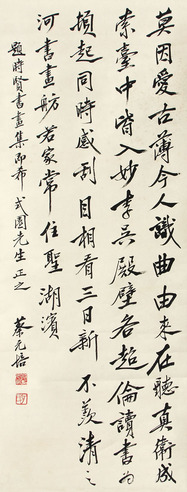 莫因愛古薄今人識曲由来在聽真衛
索臺中皆入妙李吳殿壁各超倫讀書
頓起同時感刮目相看三日新不羨清
河書畫舫君家常住聖湖濱
題時賢書畫集即希式園先生正之
蔡元培